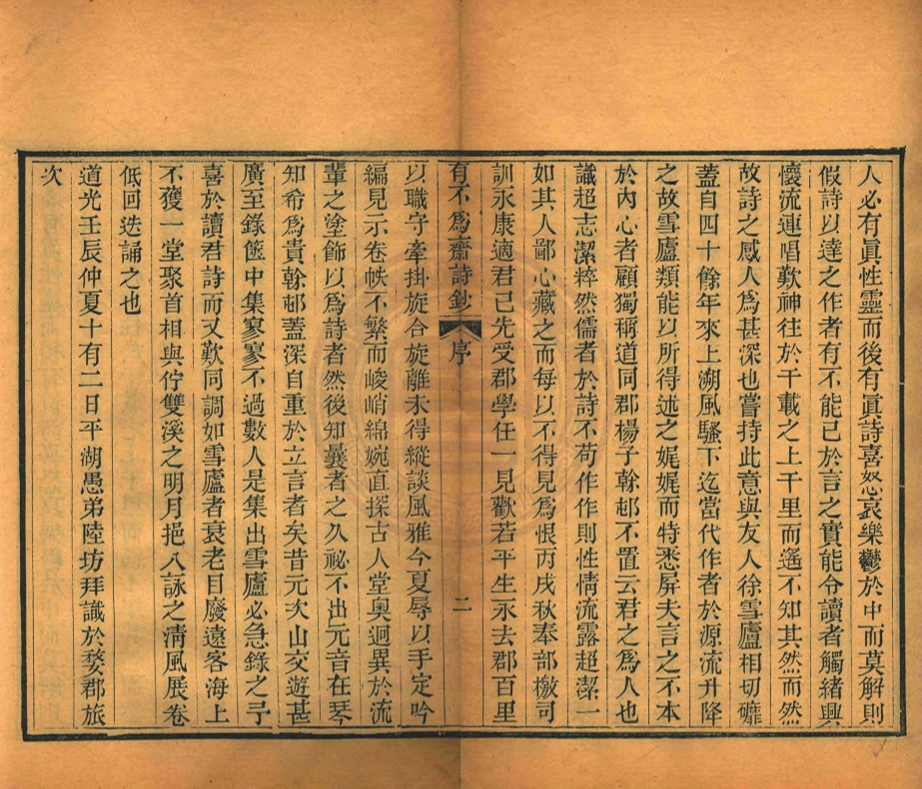 人必有眞性靈而後有眞詩喜怒哀樂鬱於中而莫解則
假詩以達之作者有不能已於言之實能令讀者觸緒興
懷流連唱歎神往於千載之上千里而遙不知其然而然
故詩之感人爲甚深也嘗持此意與友人徐雪廬相切礳
蓋自四十餘年來上溯風騷下迄當代作者於源流升降
之故雪廬類能以所得述之娓娓而特悉屏夫言之不本
於內心者顧獨稱道同郡楊子榦邨不置云君之爲人也
識超志潔粹然儒者於詩不苟作作則性情流露超潔一
如其人鄙心藏之而每以不得見爲恨丙戌秋奉部檄司
訓永康適君已先受郡學任一見歡若平生永去郡百里
有不爲齋詩鈔
序
二
以職守牽掛旋合旋離未得縱談風雅今夏辱以手定吟
編見示卷帙不繁而峻峭綿婉直探古人堂奥迥異於流
輩之塗飾以爲詩者然後知曩者之久祕不出元音在琴
知希爲貴榦邨蓋深自重於立言者矣昔元次山交遊甚
廣至錄篋中集寥寥不過數人是集出雪廬必急錄之予
喜於讀君詩而又歎同調如雪廬者衰老目廢遠客海上
不獲一堂聚首相與佇雙溪之明月挹八詠之淸風展卷
低回迭誦之也
道光壬辰仲夏十有二日平湖愚弟陸坊拜識於婺郡旅
次